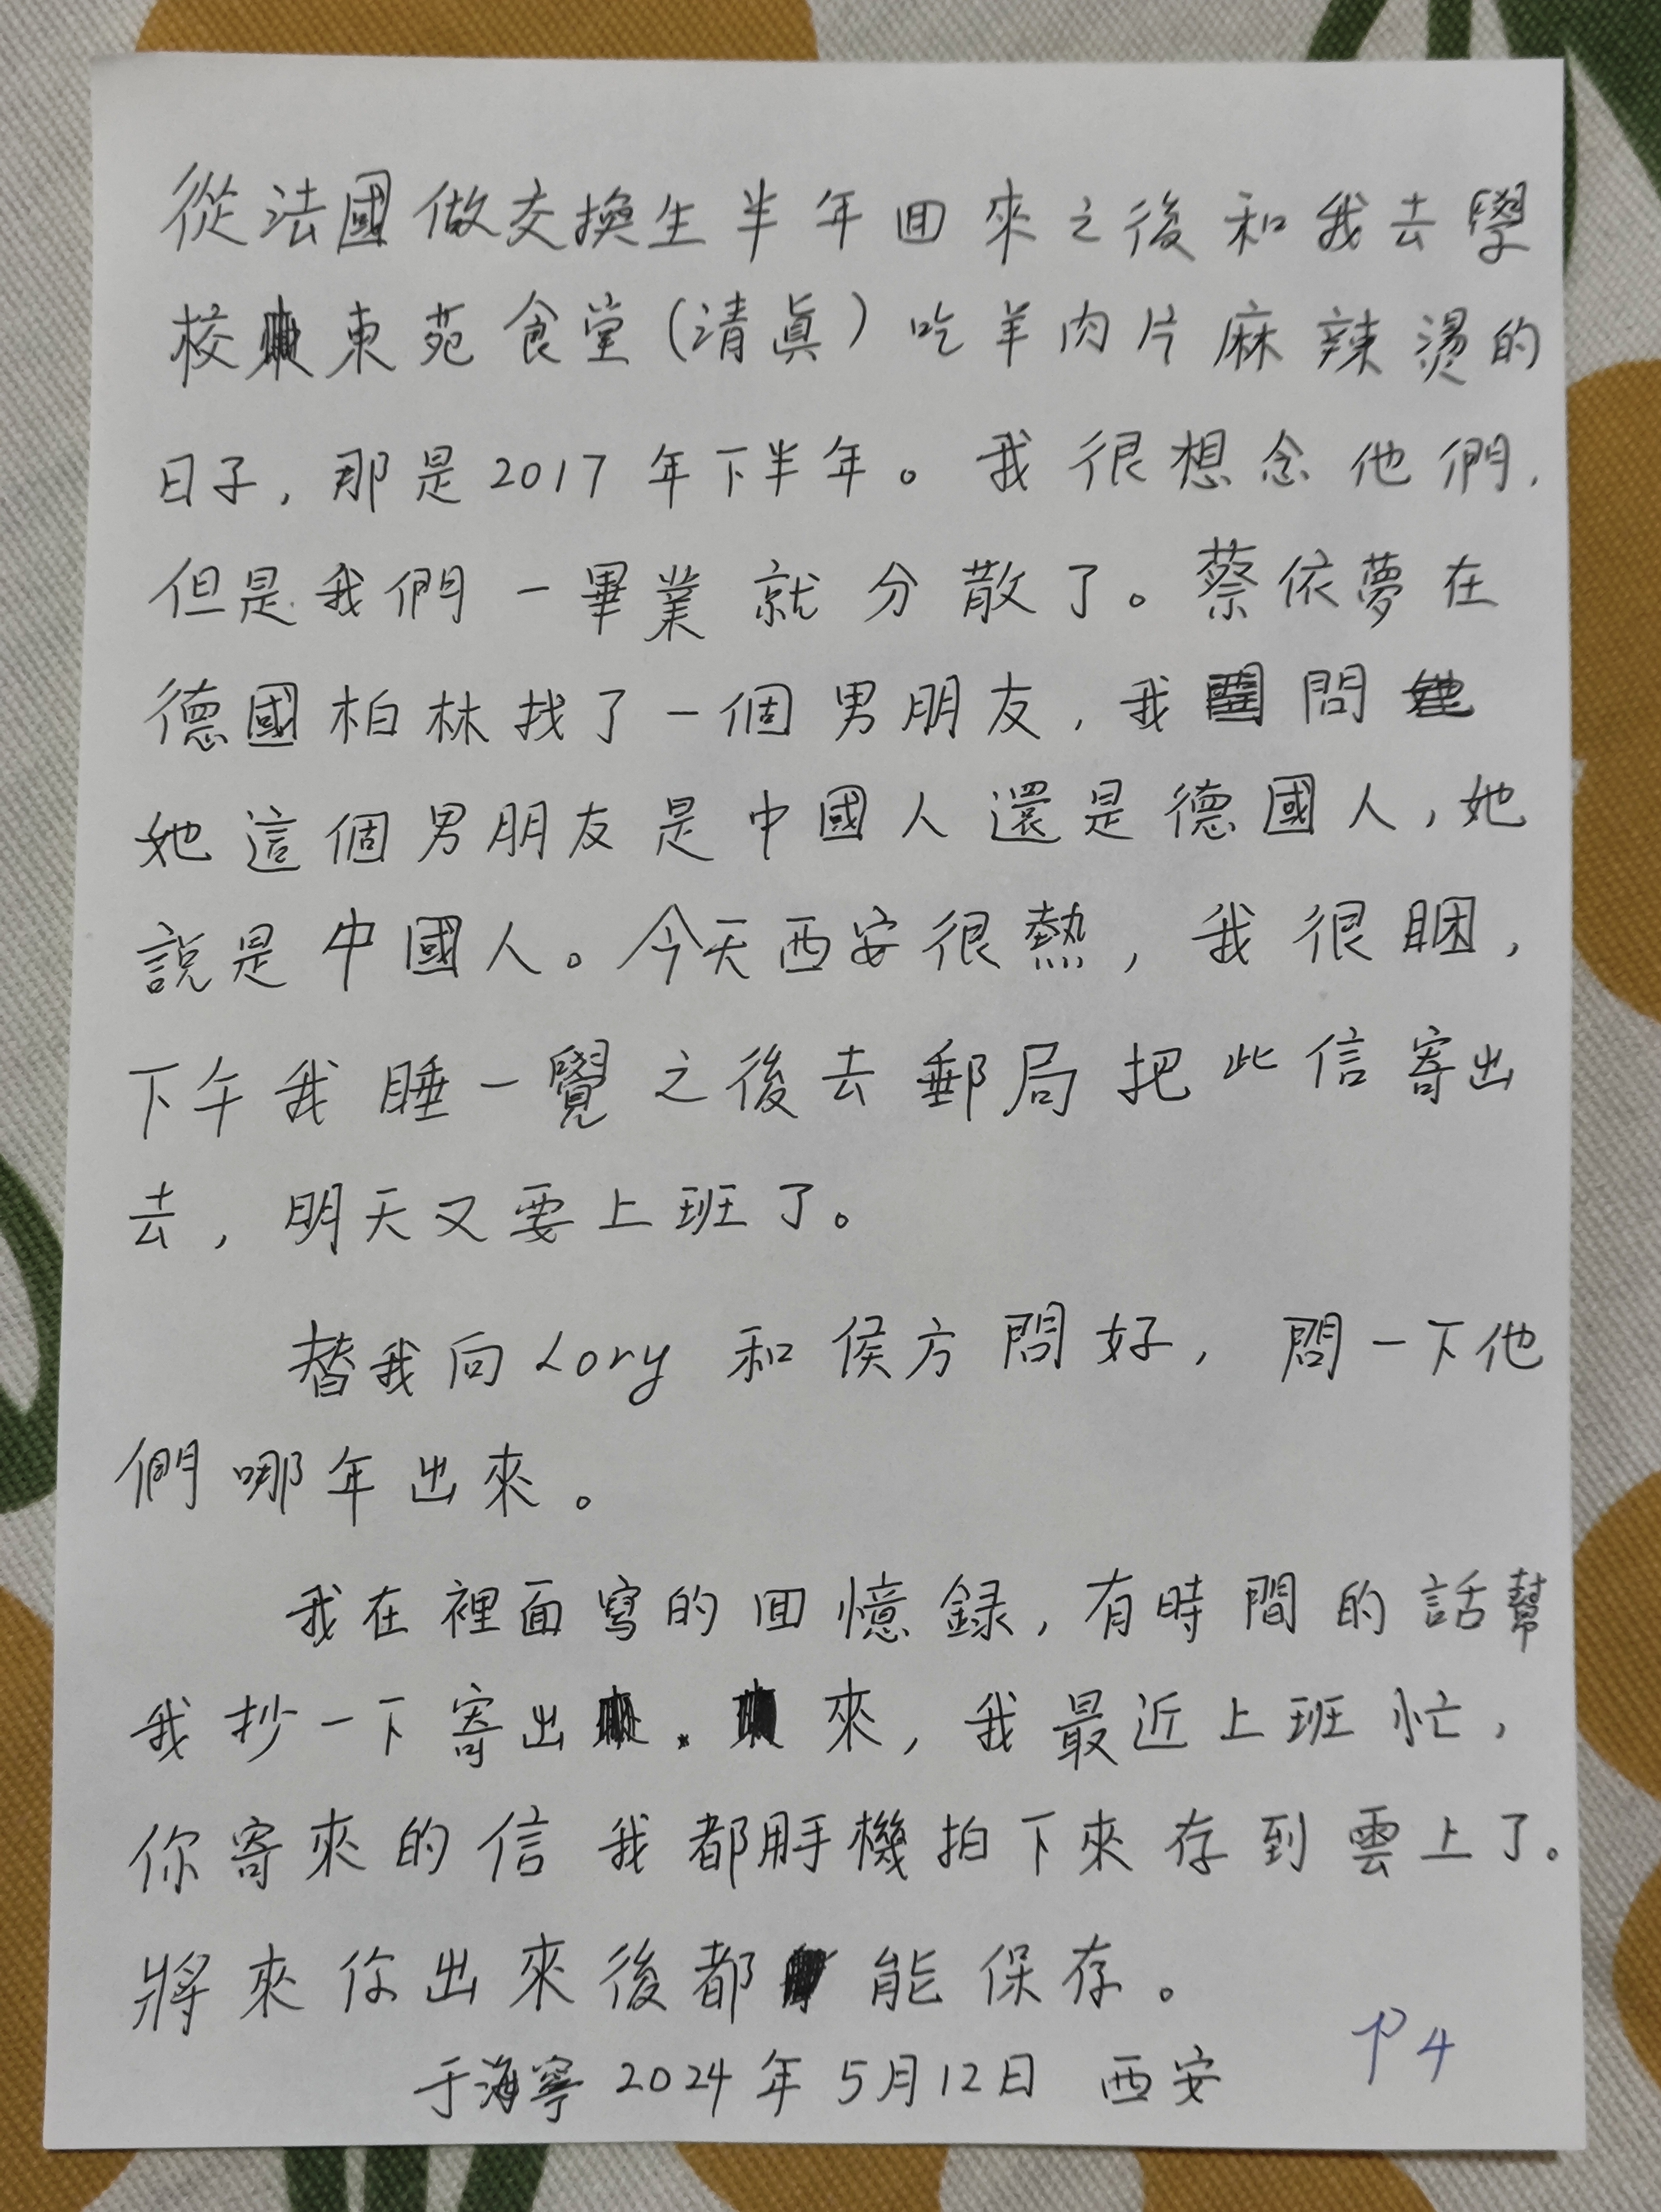 從法國做交換生半年回來之後和我去學
校東苑食堂(清真)吃羊肉片麻辣燙的
日子,那是2017年下半年。我很想念他們,
但是我們一畢業就分散了。蔡依夢在
德國柏林找了一個男朋友,我問
她這個男朋友是中國人還是德國人,她
說是中國人。今天西安很熱,我很睏,
下午我睡一覺之後去郵局把此信寄出
去,明天又要上班了。
替我向Lory和侯方問好,問一下他
們哪年出來。
我在裡面寫的回憶録,有時間的話幫
我抄一下寄出來,我最近上班忙,
你寄來的信我都用手機拍下來存到雲上了。
將來你出來後都能保存。
于海寧2024年5月12日 西安
P4